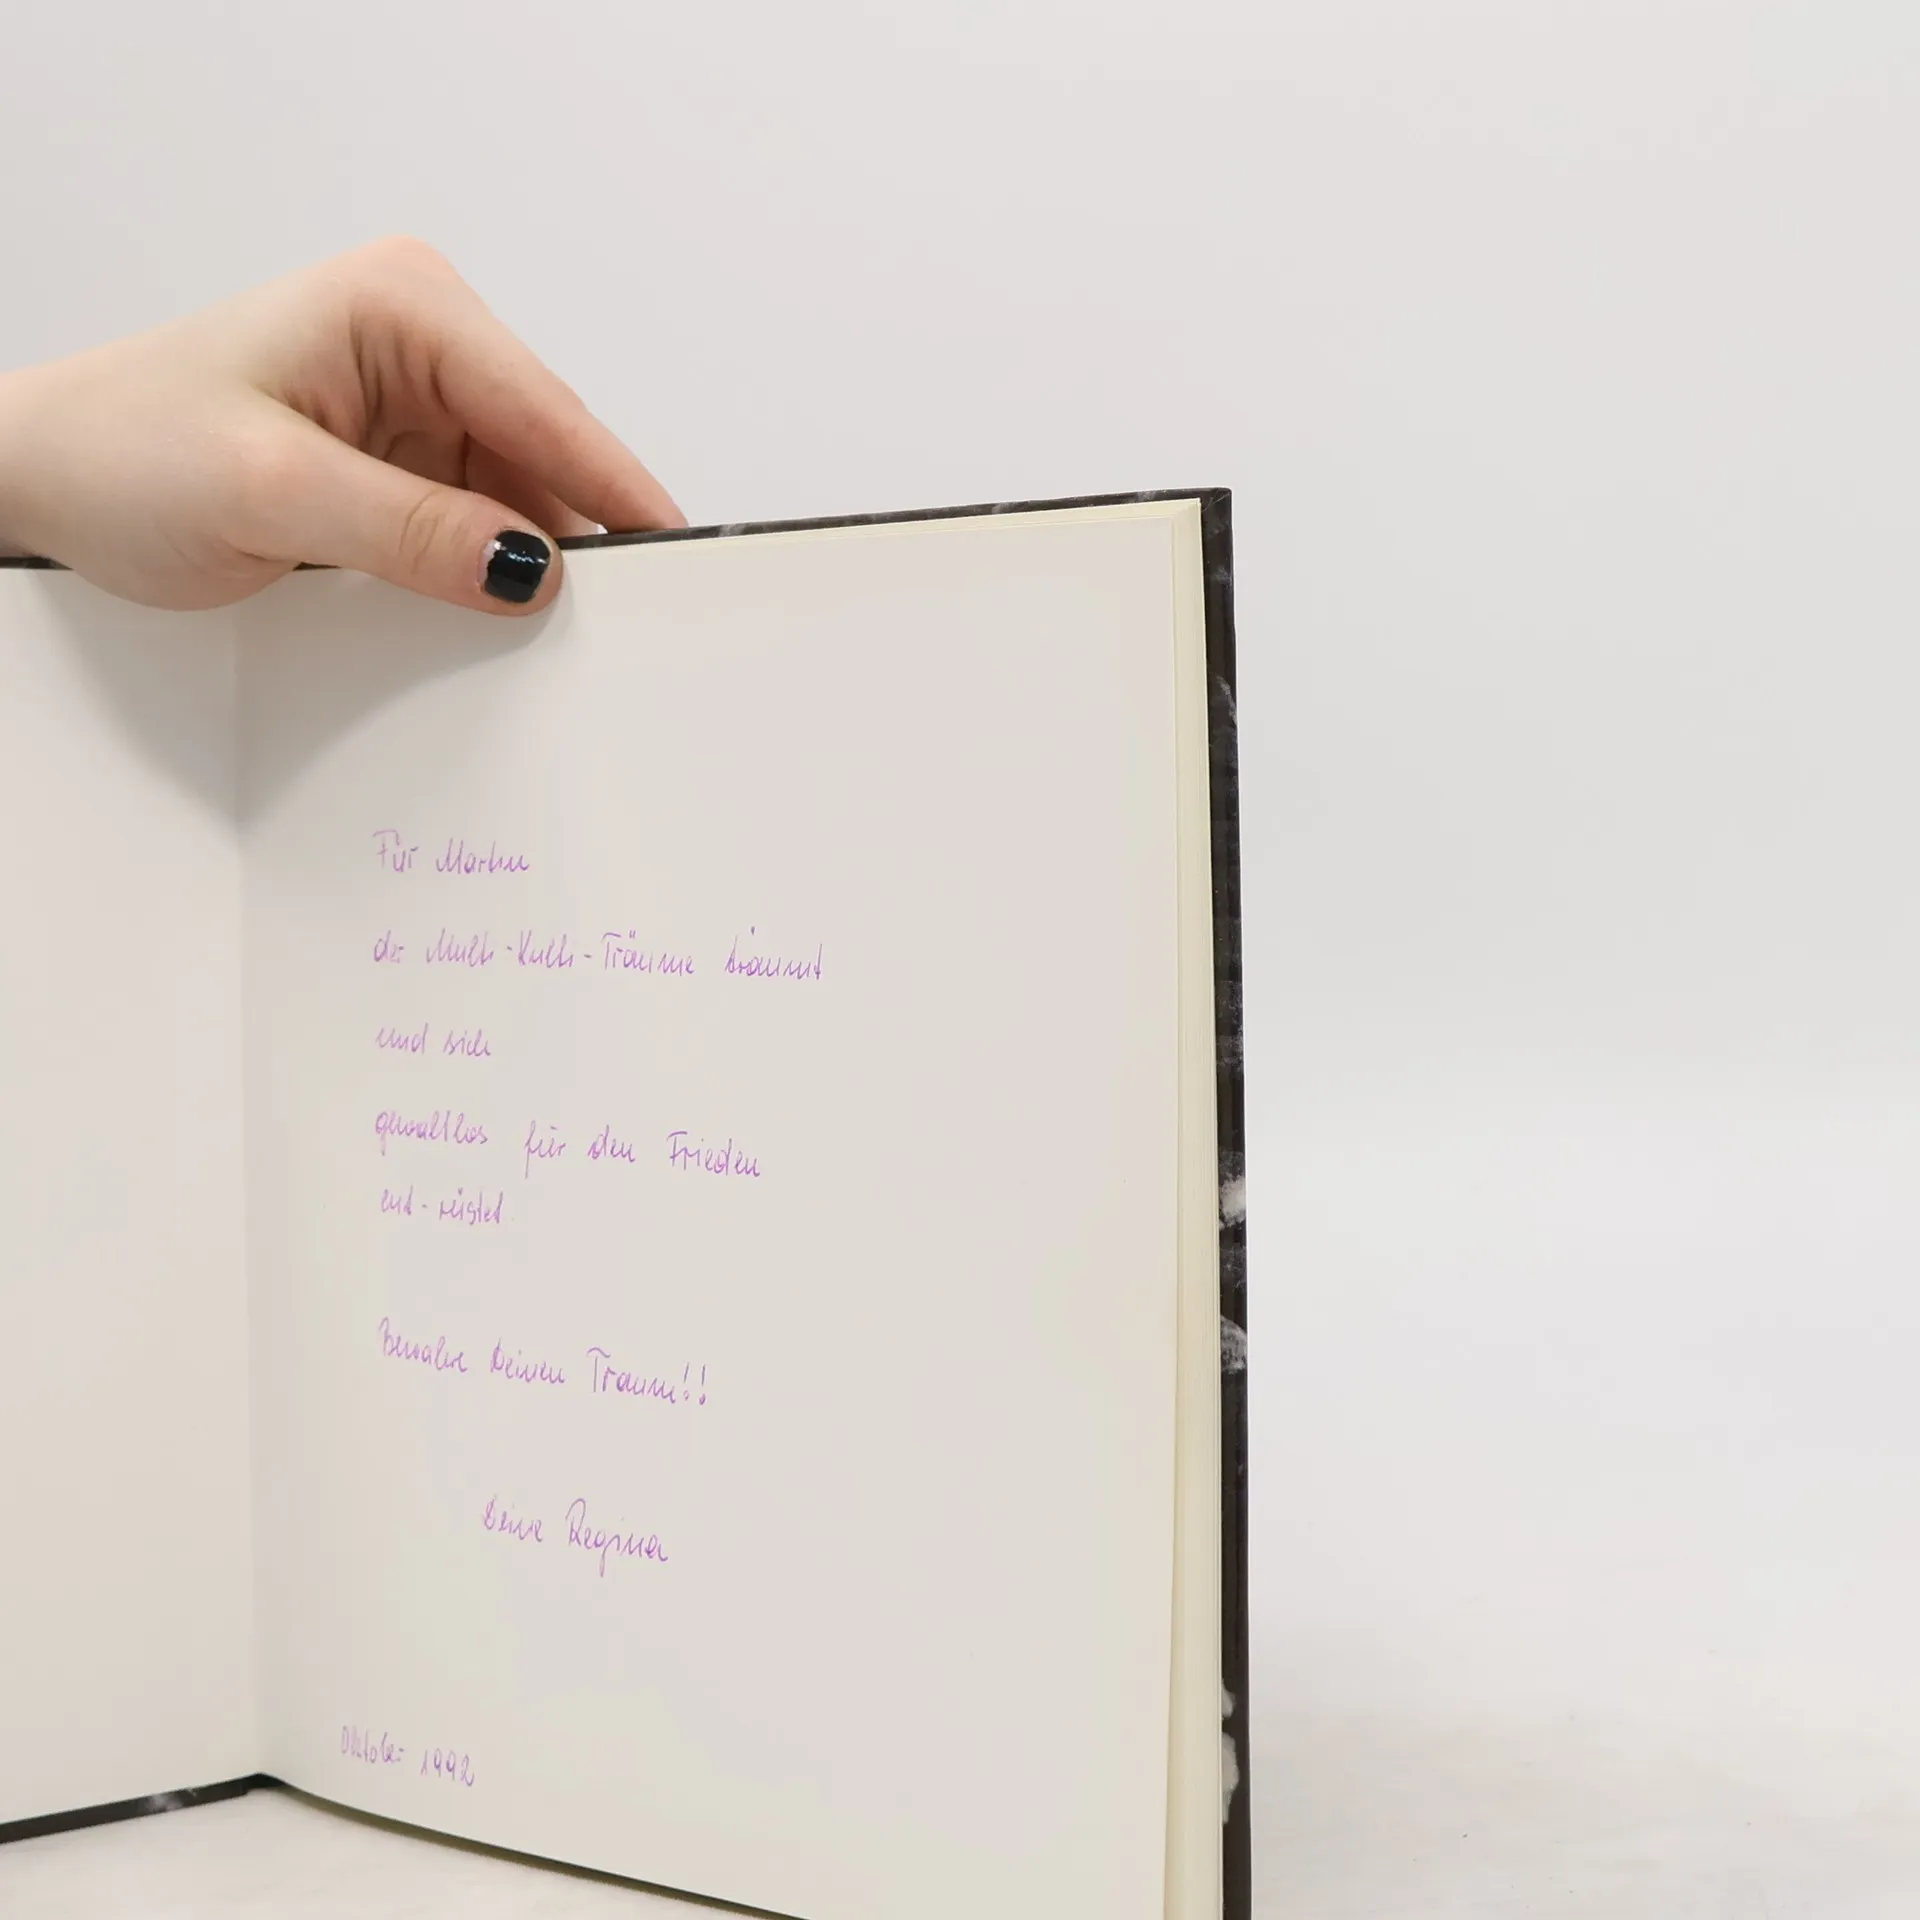 Für Martin
der Multi-Kulti-Träume träumt
und sich
gewaltlos für den Frieden
ent-rüstet
Bewahre Deinen Traum!!
Deine Regina
Oktober 1992